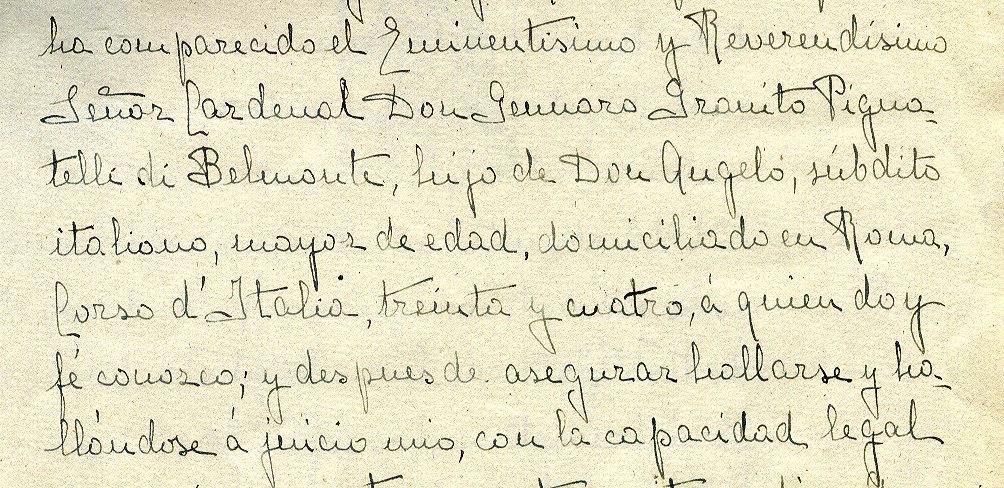 ha comparecido el Eminentisimo y Reverendísimo
Señor Cardenal Don Gennaro Granito Pigna-
telli di Belmonte, hijo de Don Angelo, súbdito
italiano, mayor de edad, domiciliado en Roma,
Corso d'Italia, treinta y cuatro, á quien doy
fé conozco; y despues de asegurar hallarse y ha-
llándose á juicio mio, con la capacidad legal